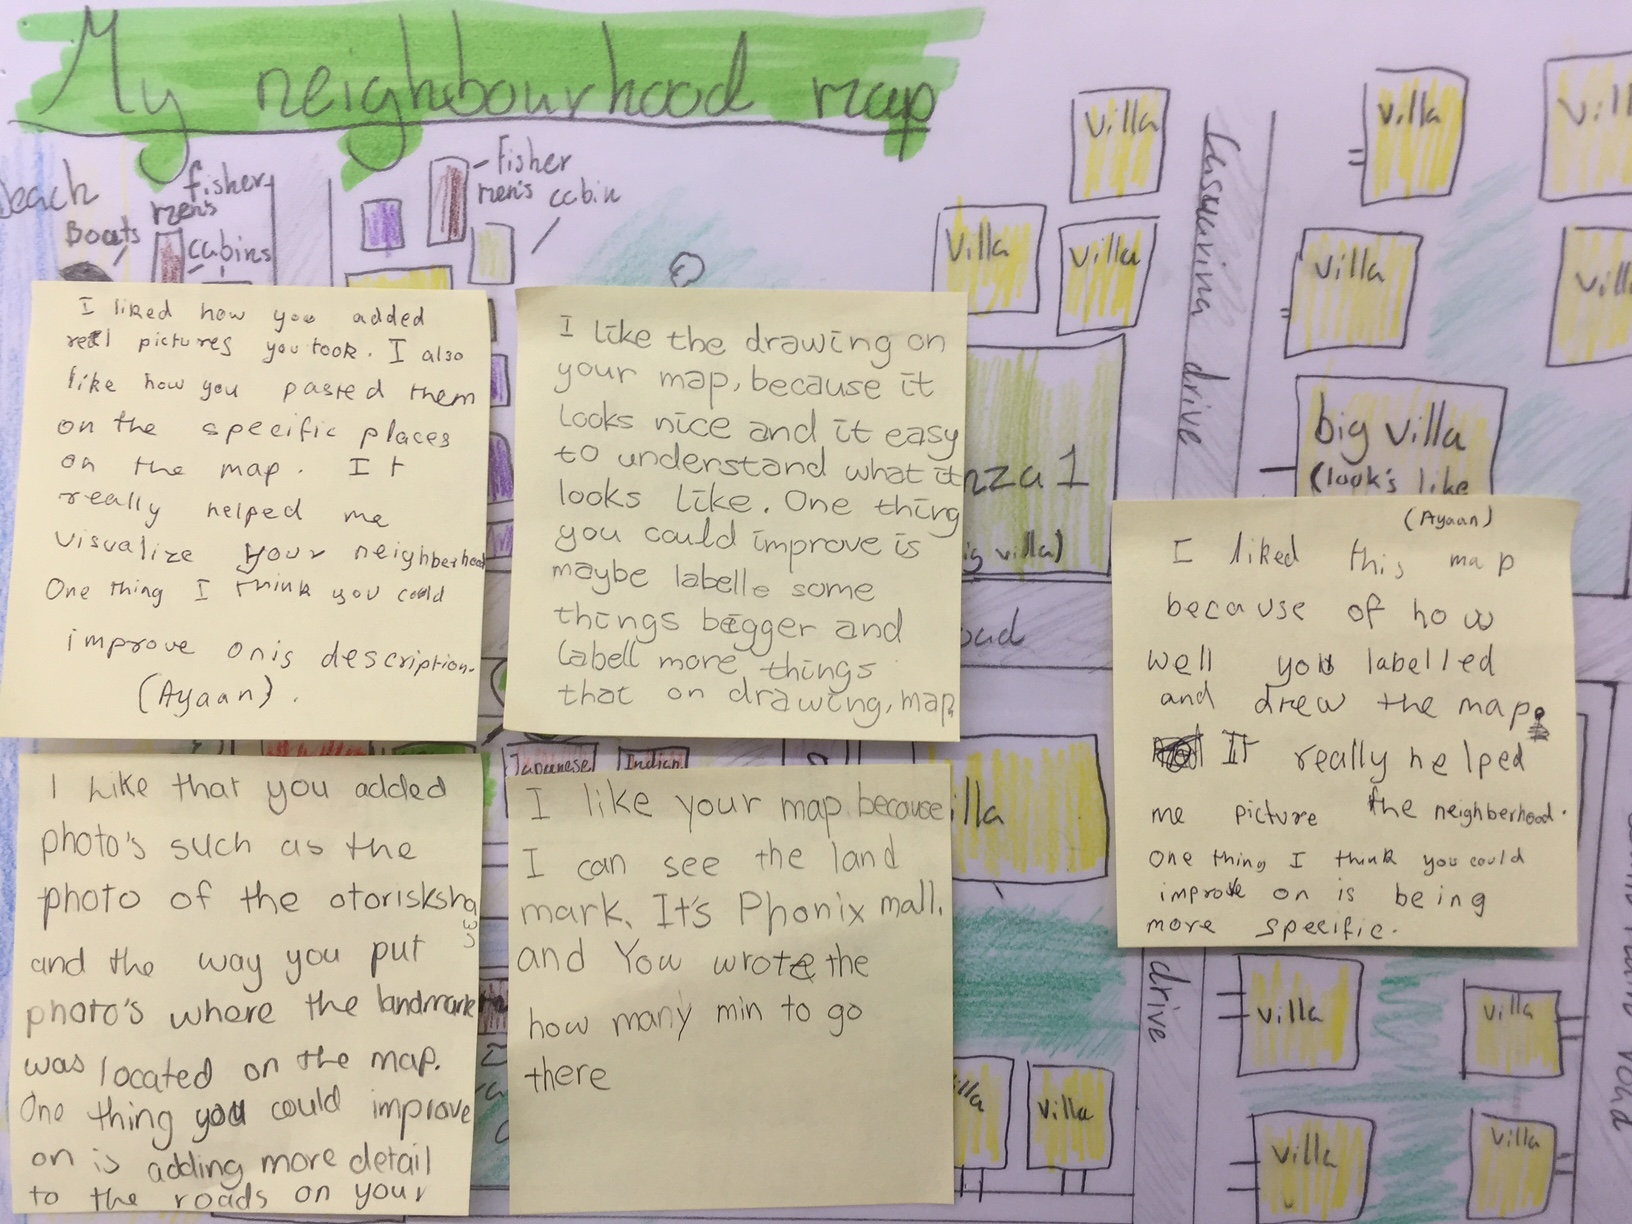 My neighbourhood map
beach
Boats
fisher
men's
cabins
fisher
men's cabin
villa
villa
villa
Casuarina drive
villa
villa
villa
big villa
(look's like
I liked how you added
real pictures you took. I also
like how you pasted them
on the specific places
on the map. It
really helped me
visualize your neighberhood
One thing I think you could
improve onis description.
(Ayaan).
I like the drawing on
your map, because it
looks nice and it easy
to understand what it
looks like. One thing
you could improve is
maybe labelle some
things bigger and
labell more things
that on drawing, map.
nza 1
villa)
oad
(Ayaan)
I liked this map
because of how
well you labelled
and drew the map.
It really helped
me picture the neighberhood.
One thing I think you could
improve on is being
more specific.
I like that you added
photo's such as the
photo of the otoriskshaw
and the way you put
photo's where the landmark
was located on the map.
One thing you could improve
on is adding more detail
to the roads on your
Japanese
Indian
I like your map because
I can see the land
mark. It's Phonix mall.
and You wrote the
how many min to go
there
illa
villa
drive
villa
villa
villa
villa